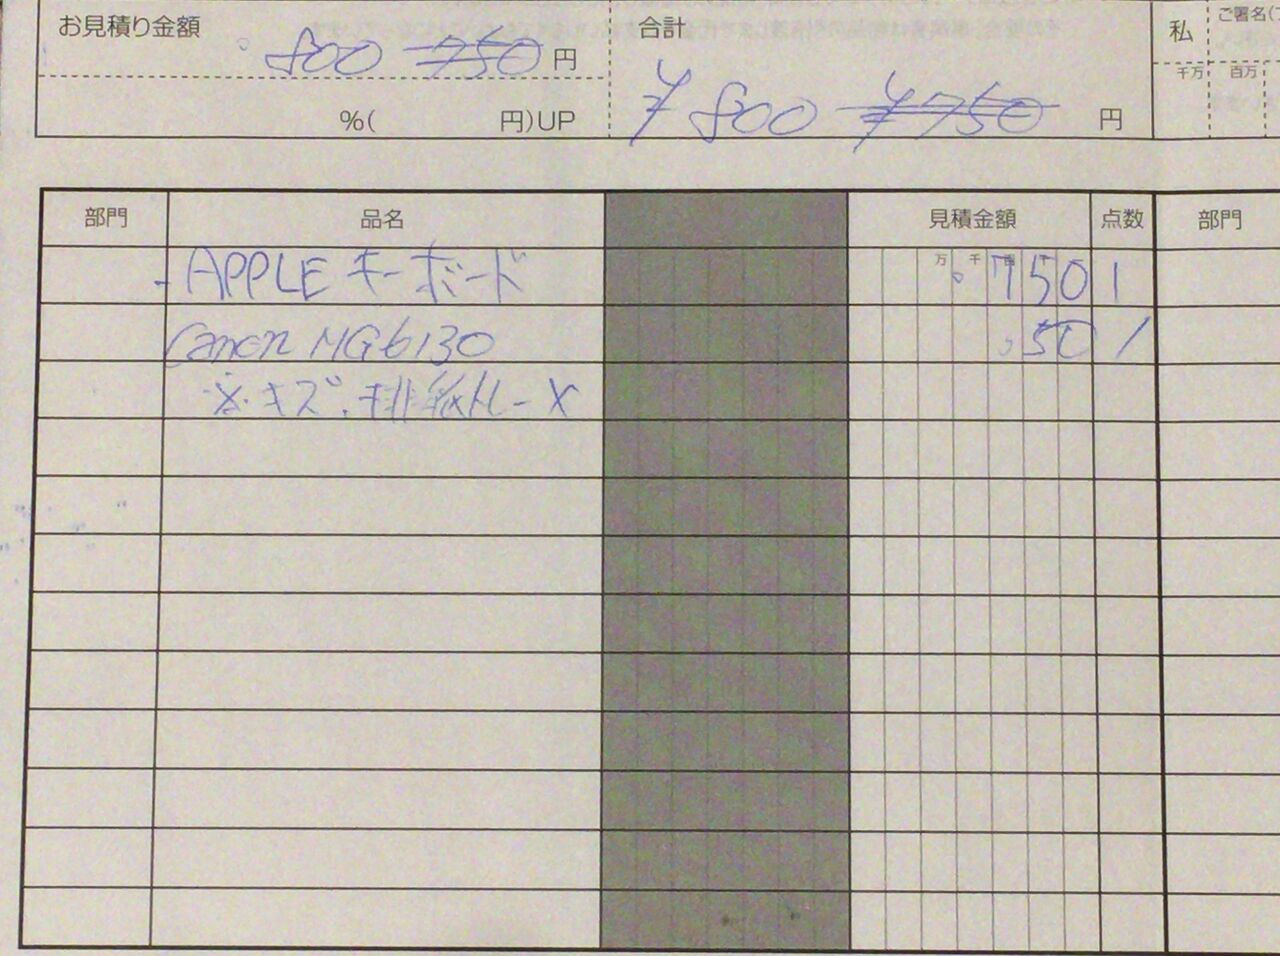 お見積り金額 800 750 円 合計
%( 円)UP ¥800 ¥750 円
私 ご署名(
千万 百万
部門 品名 見積金額 点数 部門
APPLE キーボード 万 千 750 1
Canon MG6130 50 1
※キズ、排紙トレー×